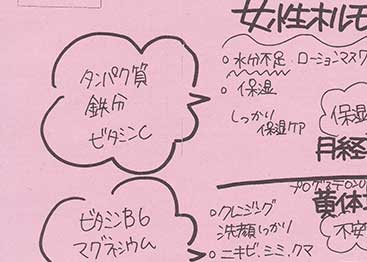 女性ホルモ
○水分不足・ローションマスク
○保湿
しっかり
保湿ケア
タンパク質
鉄分
ビタミンC
保湿
月経
黄体
ビタミンB6
マグネシウム
○クレンジング
洗顔しっかり
○ニキビ、シミ、クマ
不安